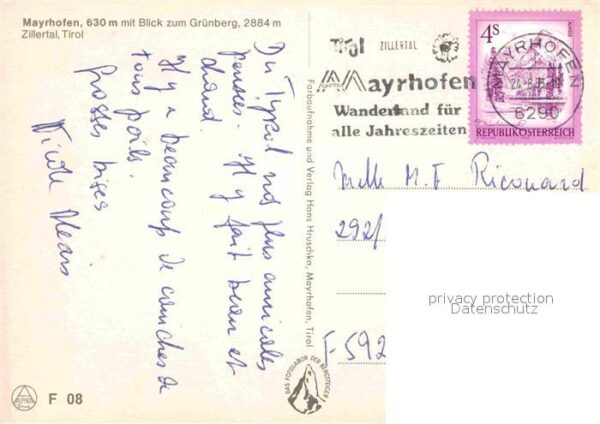 Mayrhofen, 630 m mit Blick zum Grünberg, 2884 m
Zillertal, Tirol
Du Tyrol nos plus amicales
pensées. Il y fait beau et
chaud.
Il y a beaucoup de caniches de
tous poils.
Grosses bises
Nicole
F 08
Farbaufnahme und Verlag Hans Hruschka, Mayrhofen, Tirol
DAS FOTOLABOR DER BERGSTEIGER
Tirol ZILLERTAL
Mayrhofen
Wanderland für
alle Jahreszeiten
MAYRHOFEN
6290
4S
REPUBLIK ÖSTERREICH
Melle M. F Ricouard
292/
F. 592
privacy protection
Datenschutz